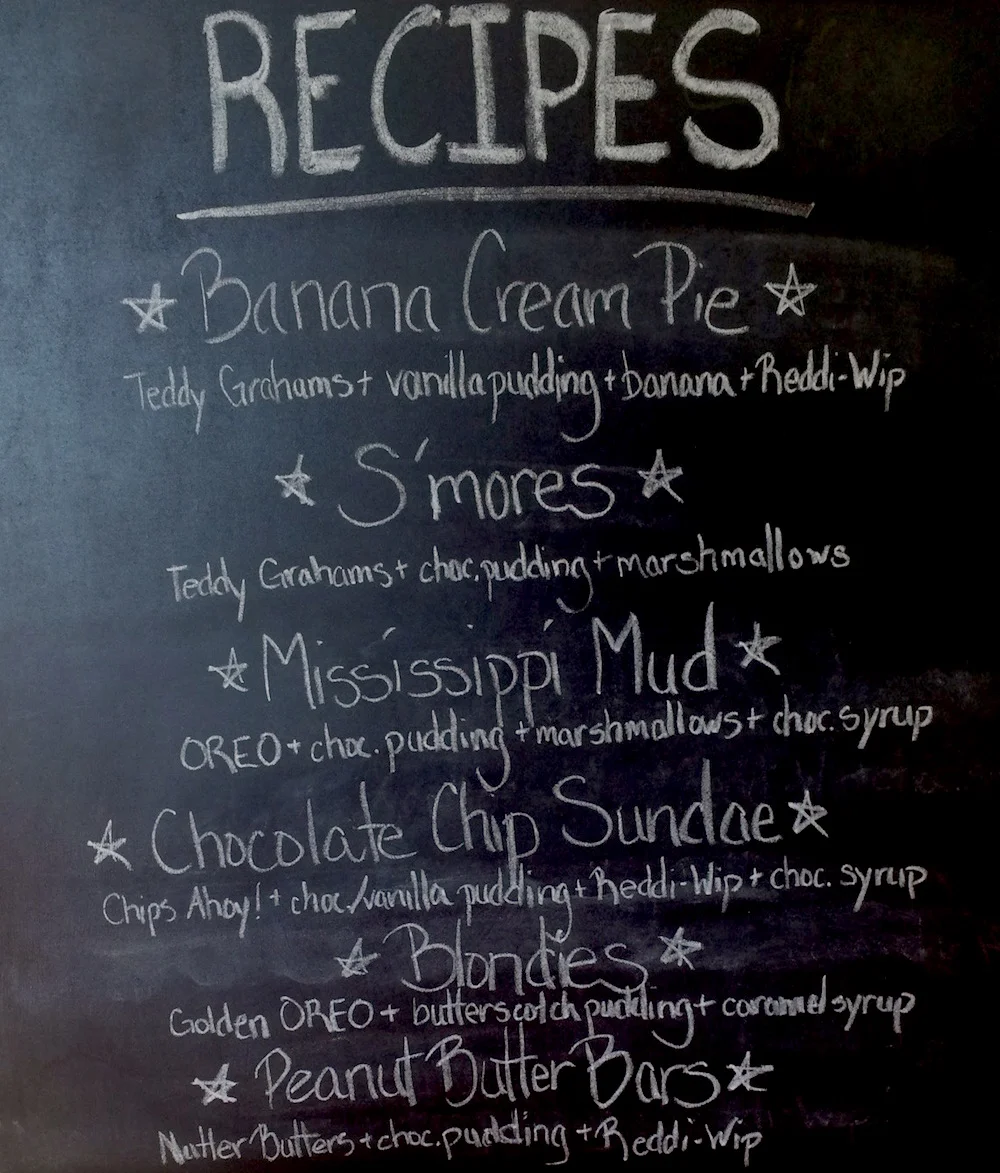 RECIPES
☆ Banana Cream Pie ☆
Teddy Grahams + vanilla pudding + banana + Reddi-Wip
☆ S'mores ☆
Teddy Grahams + choc. pudding + marshmallows
☆ Mississippi Mud ☆
OREO + choc. pudding + marshmallows + choc. syrup
☆ Chocolate Chip Sundae ☆
Chips Ahoy! + choc/vanilla pudding + Reddi-Wip + choc. syrup
☆ Blondies ☆
Golden OREO + butterscotch pudding + caramel syrup
☆ Peanut Butter Bars ☆
Nutter Butters + choc. pudding + Reddi-Wip